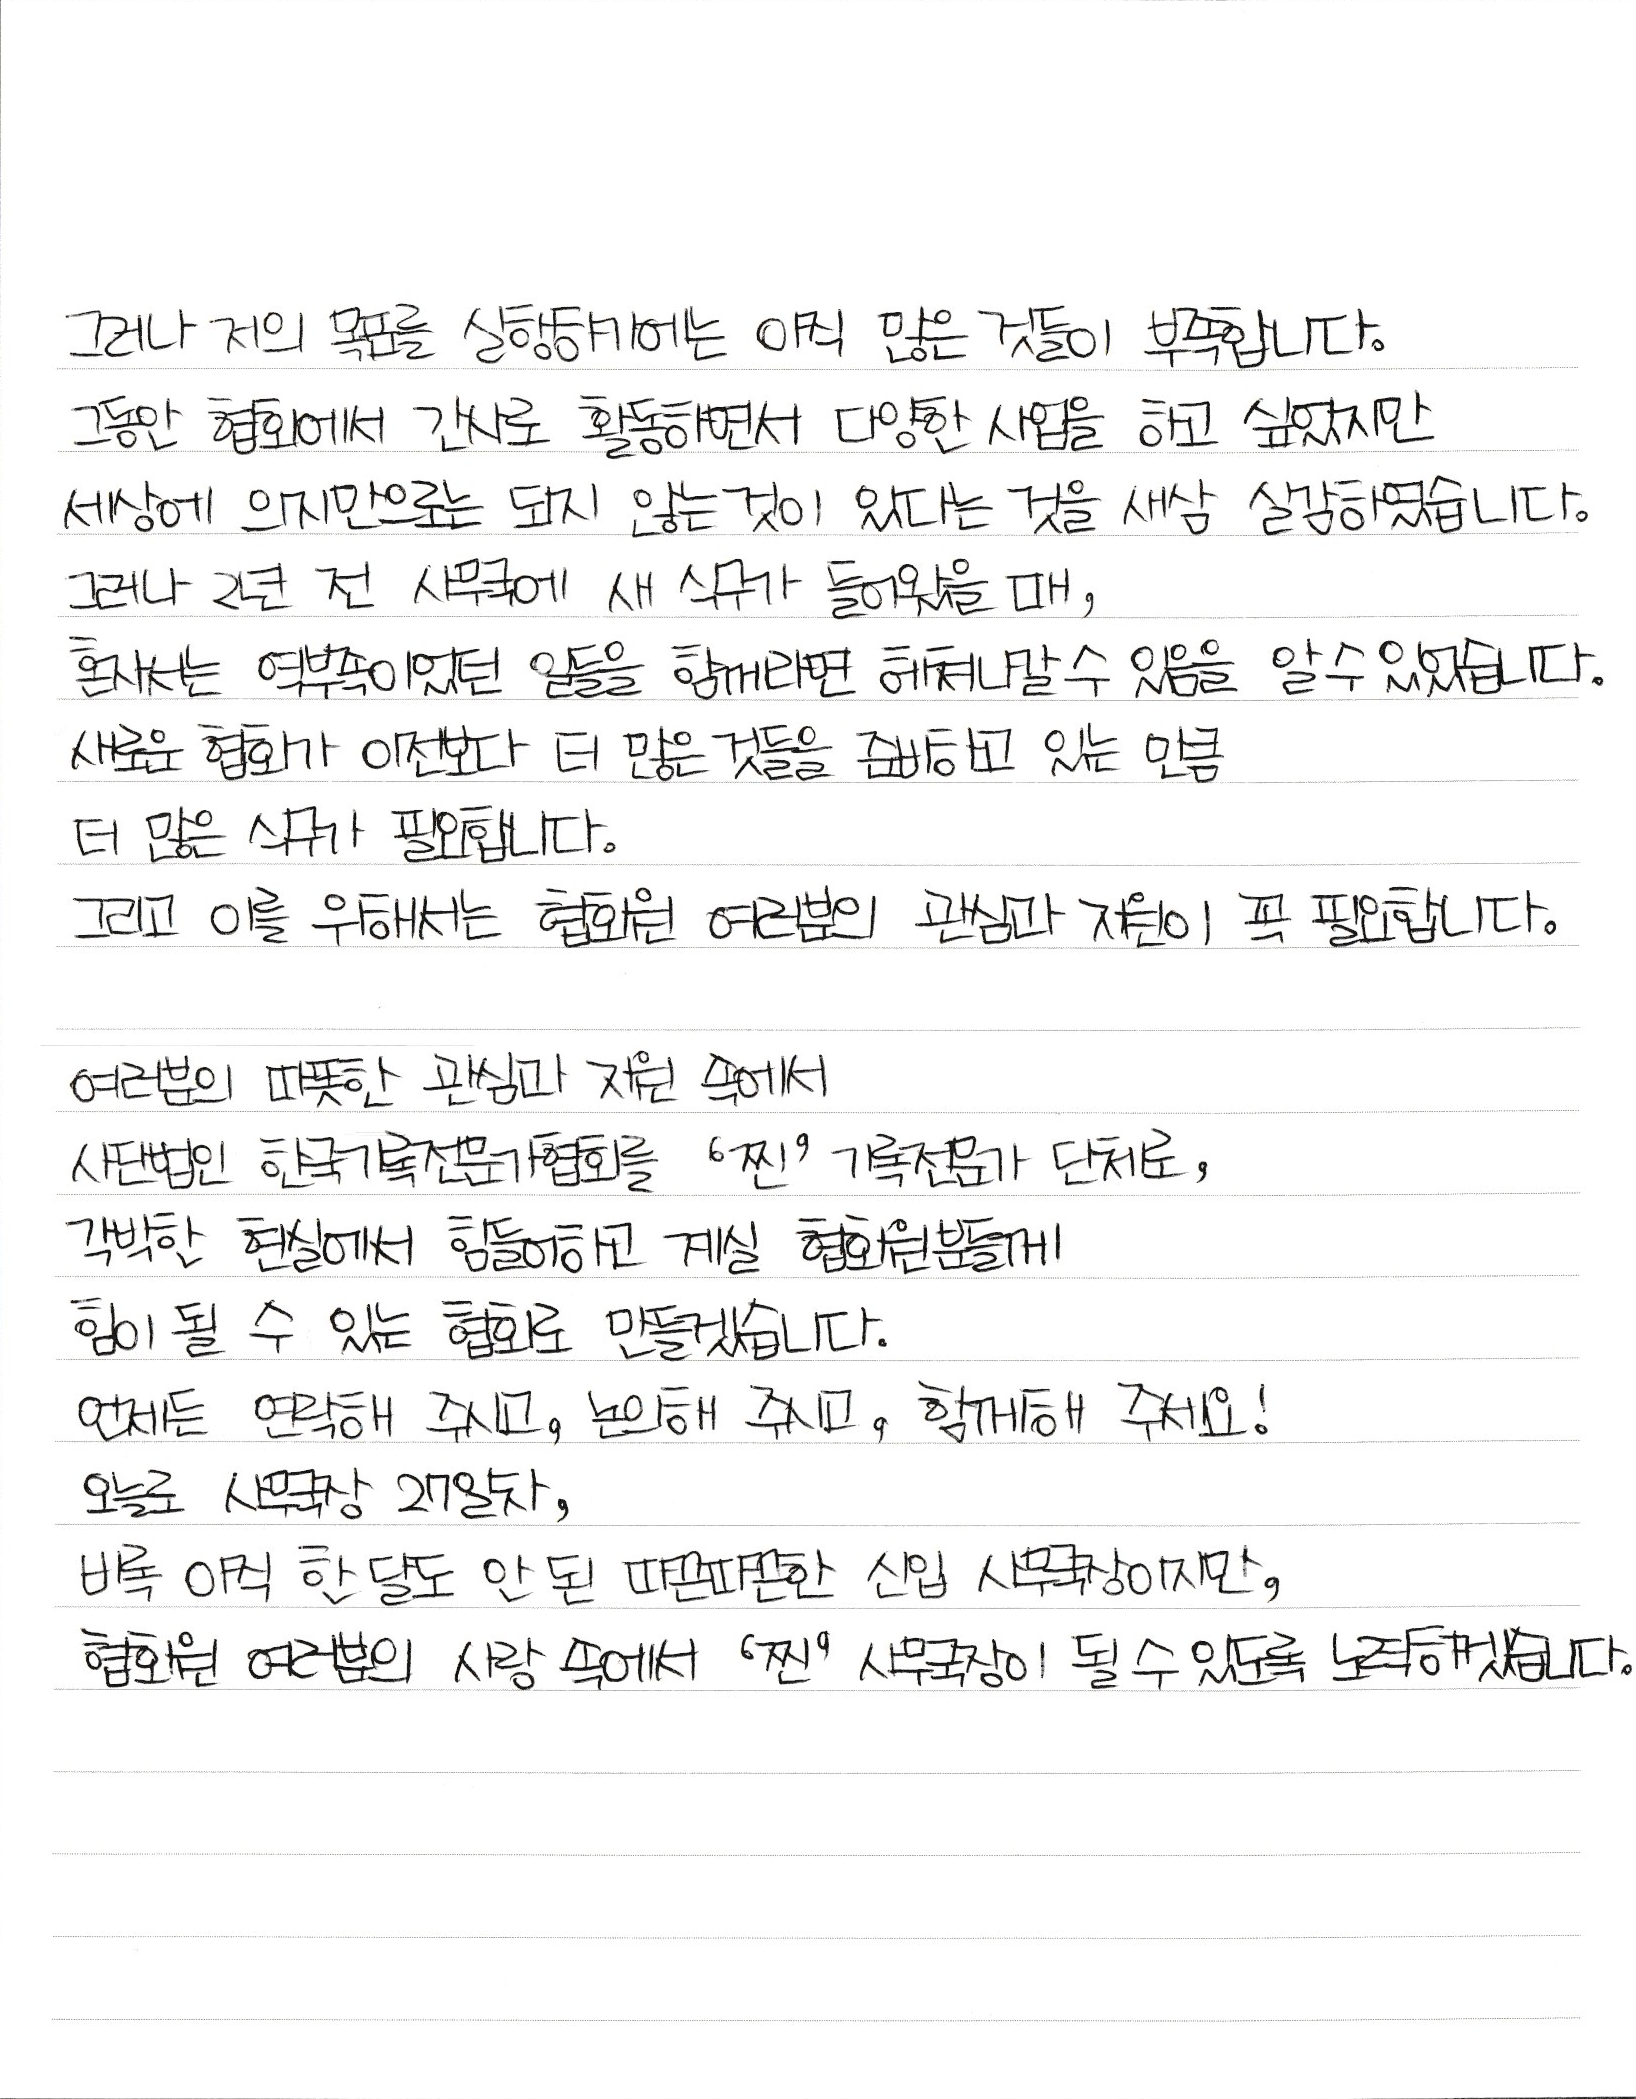 그러나 저의 목표를 실행하기에는 아직 많은 것들이 부족합니다.
그동안 협회에서 간사로 활동하면서 다양한 사업을 하고 싶었지만
세상에 의지만으로는 되지 않는 것이 있다는 것을 새삼 실감하였습니다.
그러나 2년 전 사무국에 새 식구가 들어왔을 때,
혼자서는 역부족이었던 일들을 함께라면 헤쳐나갈 수 있음을 알 수 있었습니다.
새로운 협회가 이전보다 더 많은 것들을 준비하고 있는 만큼
더 많은 식구가 필요합니다.
그리고 이를 위해서는 협회원 여러분의 관심과 지원이 꼭 필요합니다.
여러분의 따뜻한 관심과 지원 속에서
사단법인 한국기록전문가협회를 '찐' 기록전문가 단체로,
각박한 현실에서 힘들어하고 계실 협회원분들께
힘이 될 수 있는 협회로 만들겠습니다.
언제든 연락해 주시고, 논의해 주시고, 함께해 주세요!
오늘로 사무국장 27일차,
비록 아직 한 달도 안 된 따끈따끈한 신입 사무국장이지만,
협회원 여러분의 사랑 속에서 '찐' 사무국장이 될 수 있도록 노력하겠습니다.